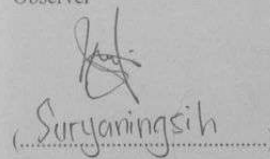 Observer
Suryaningsih